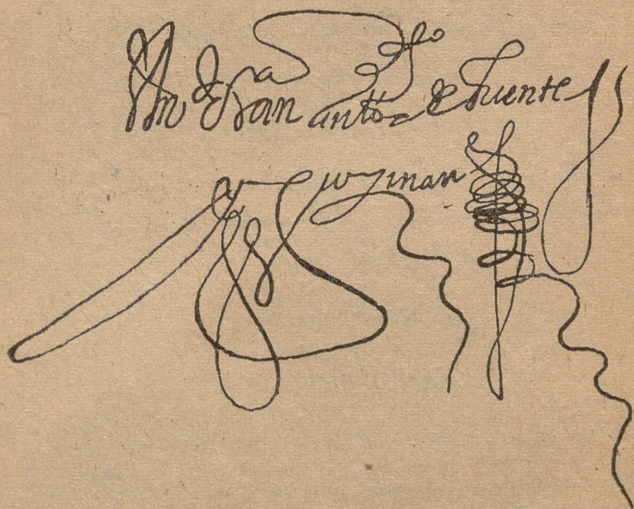 Dn Fran anto de Fuentes
y guzman